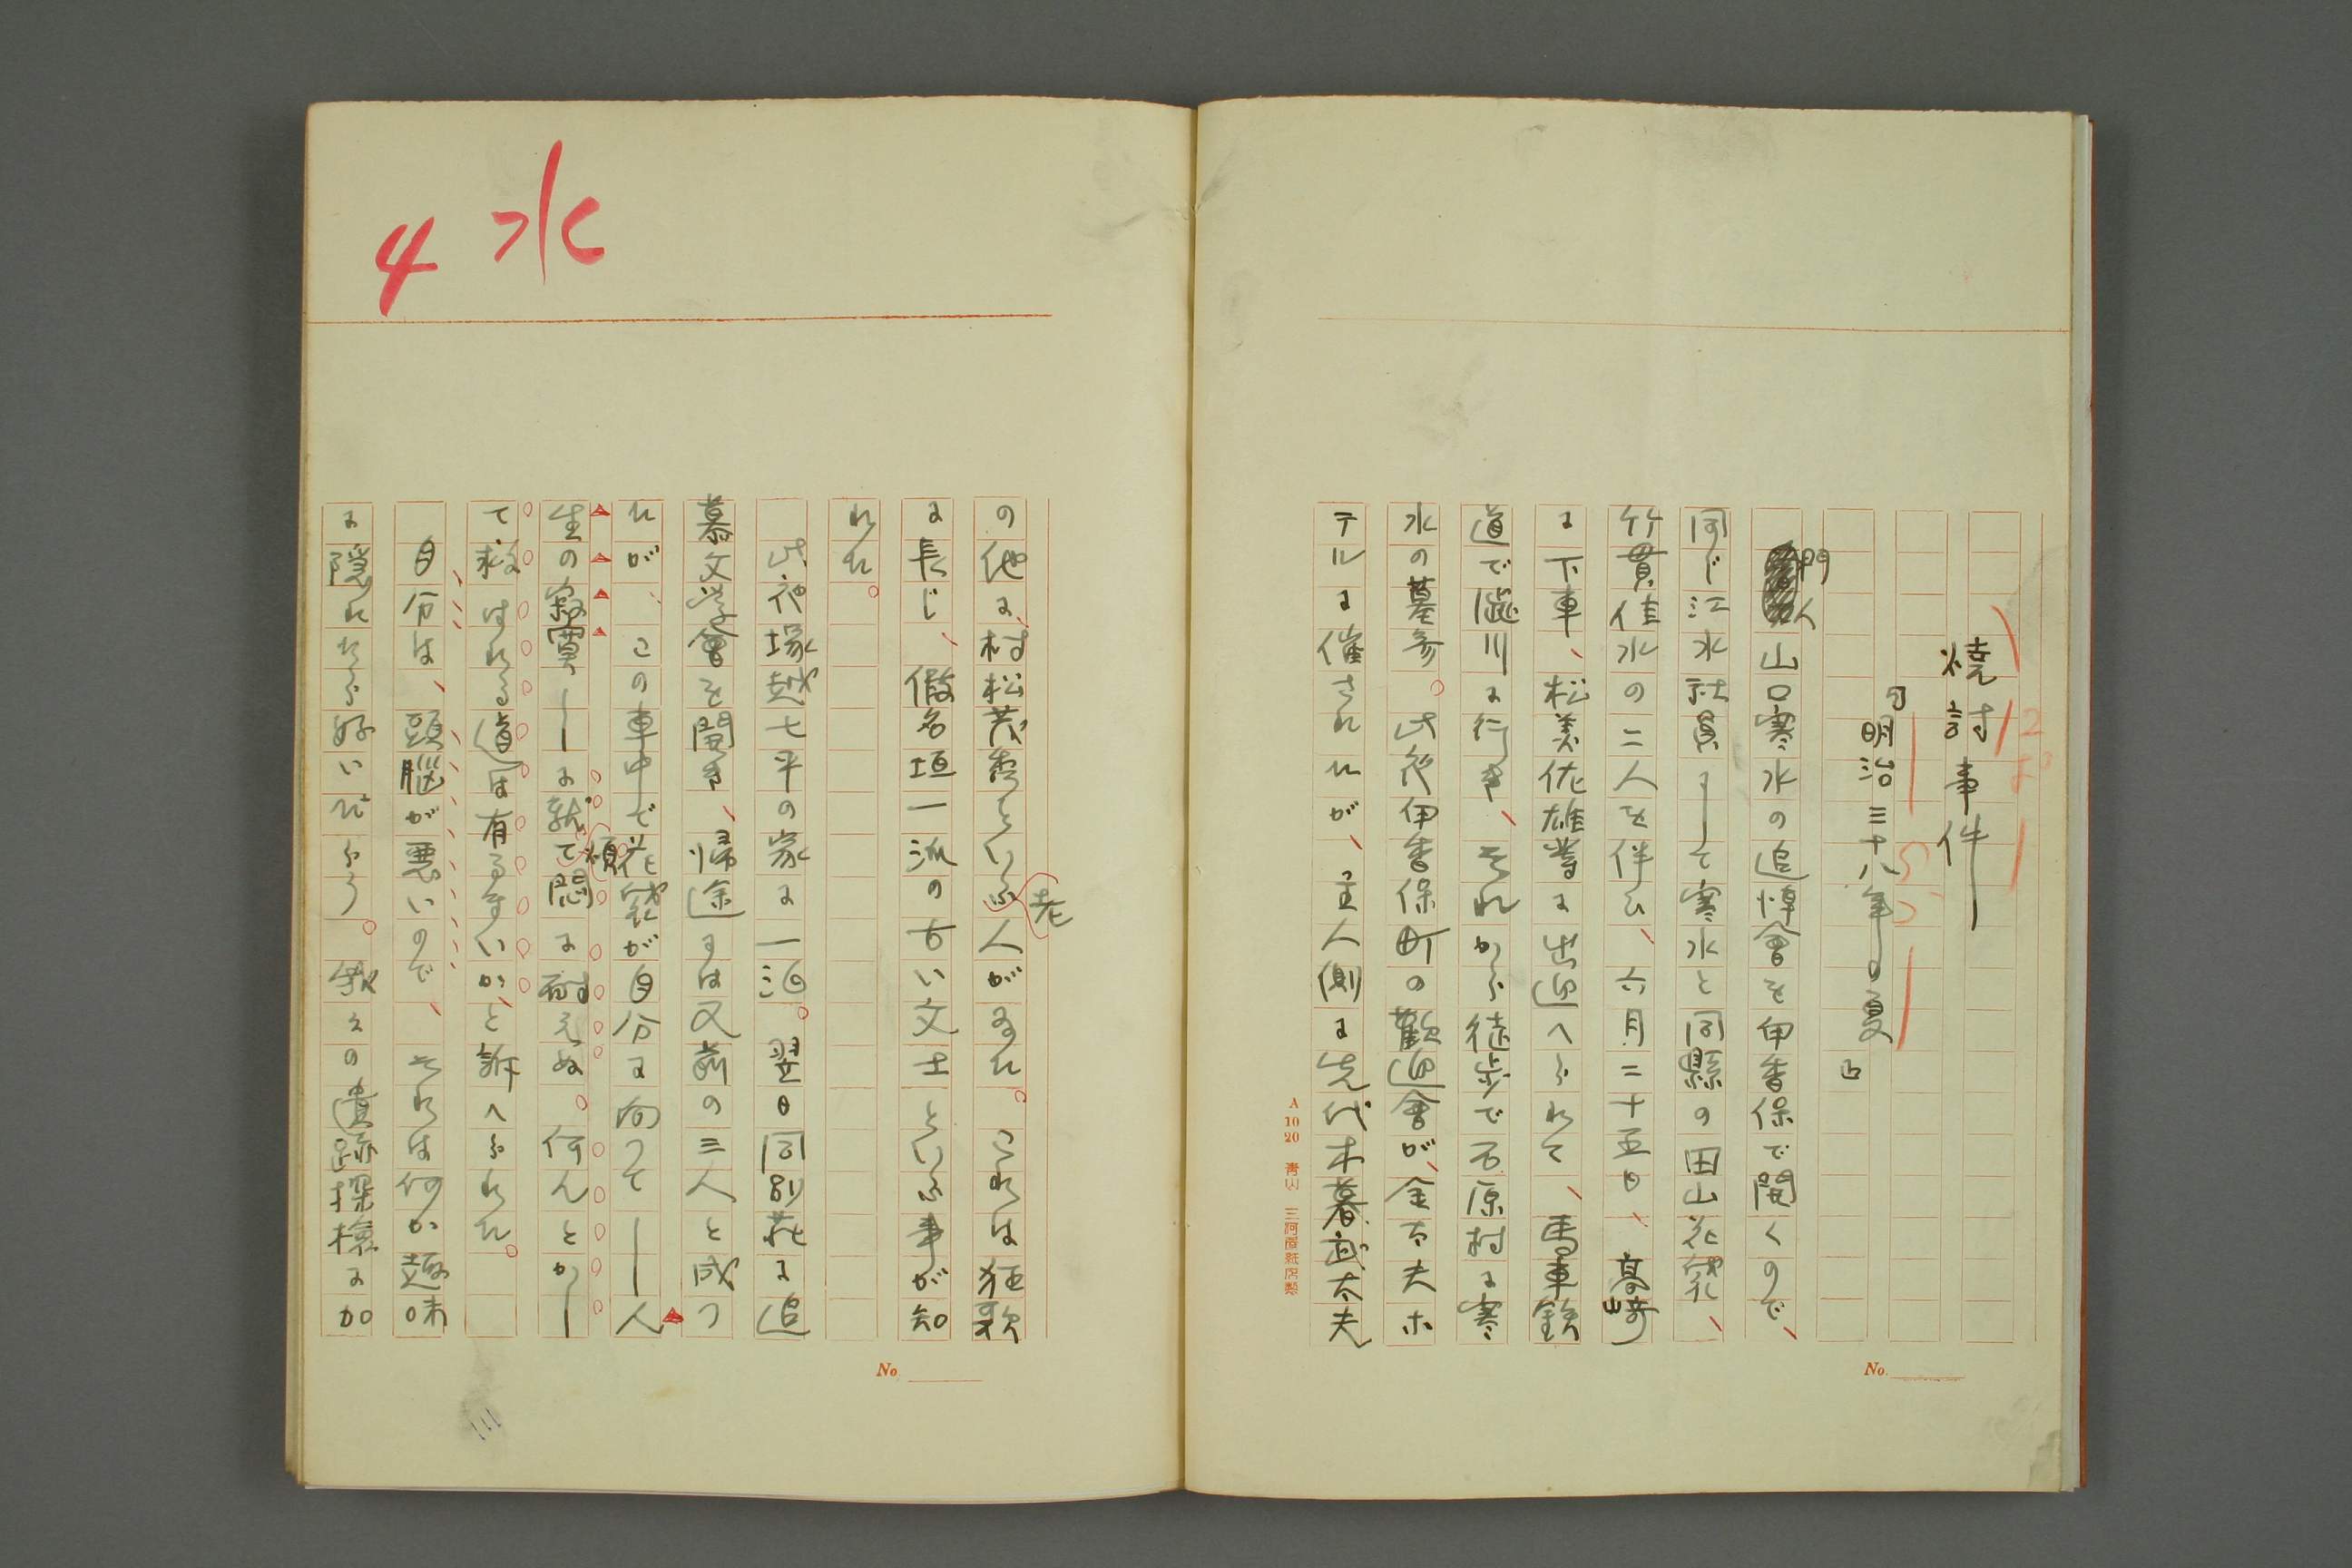 焼討事件
明治三十八年の夏
門人山口寒水の追悼會を伊香保で開くので、
同じ江水社員にして寒水と同縣の田山花袋、
竹貫佳水の二人を伴ひ、六月二十五日、高崎
に下車、松美佐雄等に出迎へられて、馬車鉄
道で澁川に行き、それから徒歩で石原村に寒
水の墓参。此夜伊香保町の歡迎會が、金太夫ホ
テルに催されたが、主人側に先代木暮武太夫
A 10 20 青山 三河屋紙店製
No.
水
4
の他に、村松茂香といふ老人が有た。これは狂歌
に長じ、假名垣一派の古い文士といふ事が知
れた。
此夜塚越七平の家に一泊。翌日同別荘に追
慕文学會を開き、帰途には又前の三人と成つ
たが、この車中で花袋が自分に向つて――人
生の寂寞――に就て煩悶に耐えぬ。何んとかし
て、救はれる道は有るまいかと訴へられた。
自分は、頭腦が悪いので、それは何か趣味
に隠れたら好いだらう。我々の遺跡探檢に加
No.